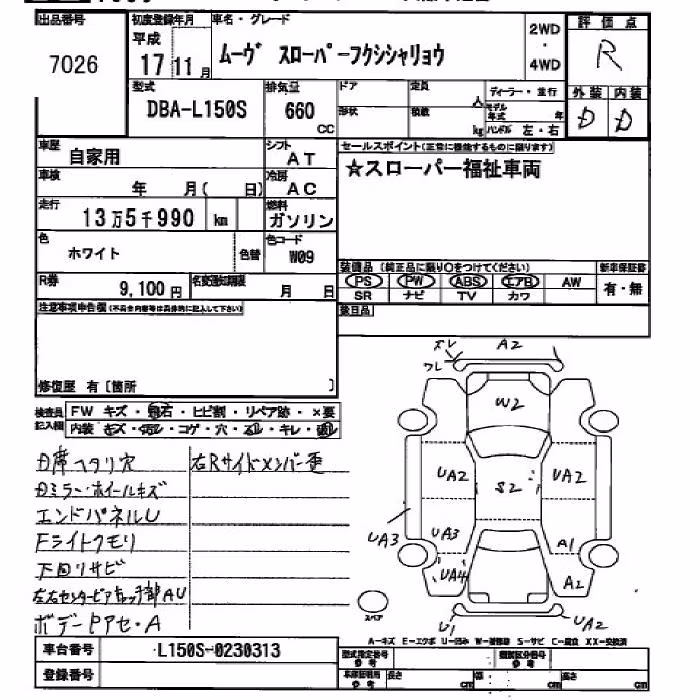 出品番号
7026
初度登録年月
平成
17 11月
車名・グレード
ムーヴ スローパーフクシシャリョウ
2WD
・
4WD
評価点
R
外装 内装
D D
型式
DBA-L150S
排気量
660
cc
ドア
定員
人
形状
積載
kg
ディーラー・並行
モデル年式 年
ハンドル 左・右
車歴
自家用
シフト
AT
車検
年 月( 日)
冷房
AC
走行
13万5千990 km
燃料
ガソリン
色
ホワイト
色替
色コード
W09
R券
9,100円
名変通知期限
月 日
セールスポイント(正常に機能するものに限ります)
☆スローパー福祉車両
装備品(純正品に限り○をつけてください)
PS PW ABS エアB AW
SR ナビ TV カワ
新車保証書
有・無
注意事項申告欄(不具合内容等は具体的に記入して下さい)
修復歴 有〔箇所 〕
検査員記入欄
FW キズ・飛石・ヒビ割・リペア跡・×要
内装 キズ・汚レ・コゲ・穴・スレ・キレ・臭
D席ヘタリ穴
右Rサイドメンバー歪
Dミラー・ホイールキズ
エンドパネルU
Fライトクモリ
下回リサビ
ボデー A
ズレ
ワレ
A2
W2
UA2
S2
UA2
UA3
UA3
A1
UA4
A2
U1
UA2
スペア
車台番号
L150S-0230313
登録番号
A-キズ E-エクボ U-凹み W-補修跡 S-サビ C-腐食 XX-交換済
型式指定番号
参考
類別区分番号
参考
長さ cm 幅 cm 高さ cm